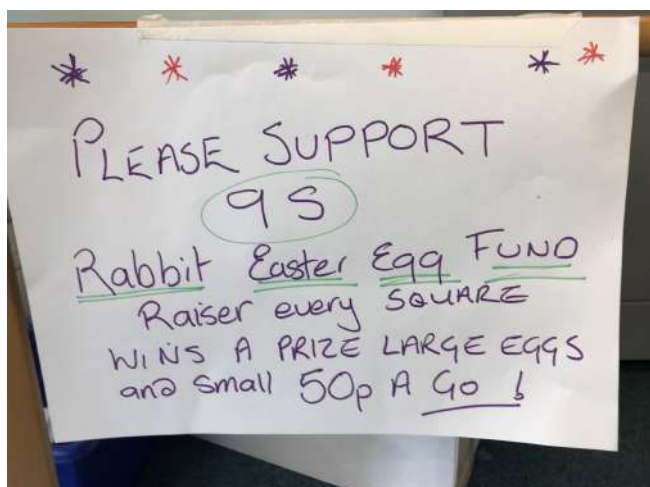 PLEASE SUPPORT
9S
Rabbit Easter Egg FUND
Raiser every SQUARE
WINS A PRIZE LARGE EGGS
and Small 50p A Go !